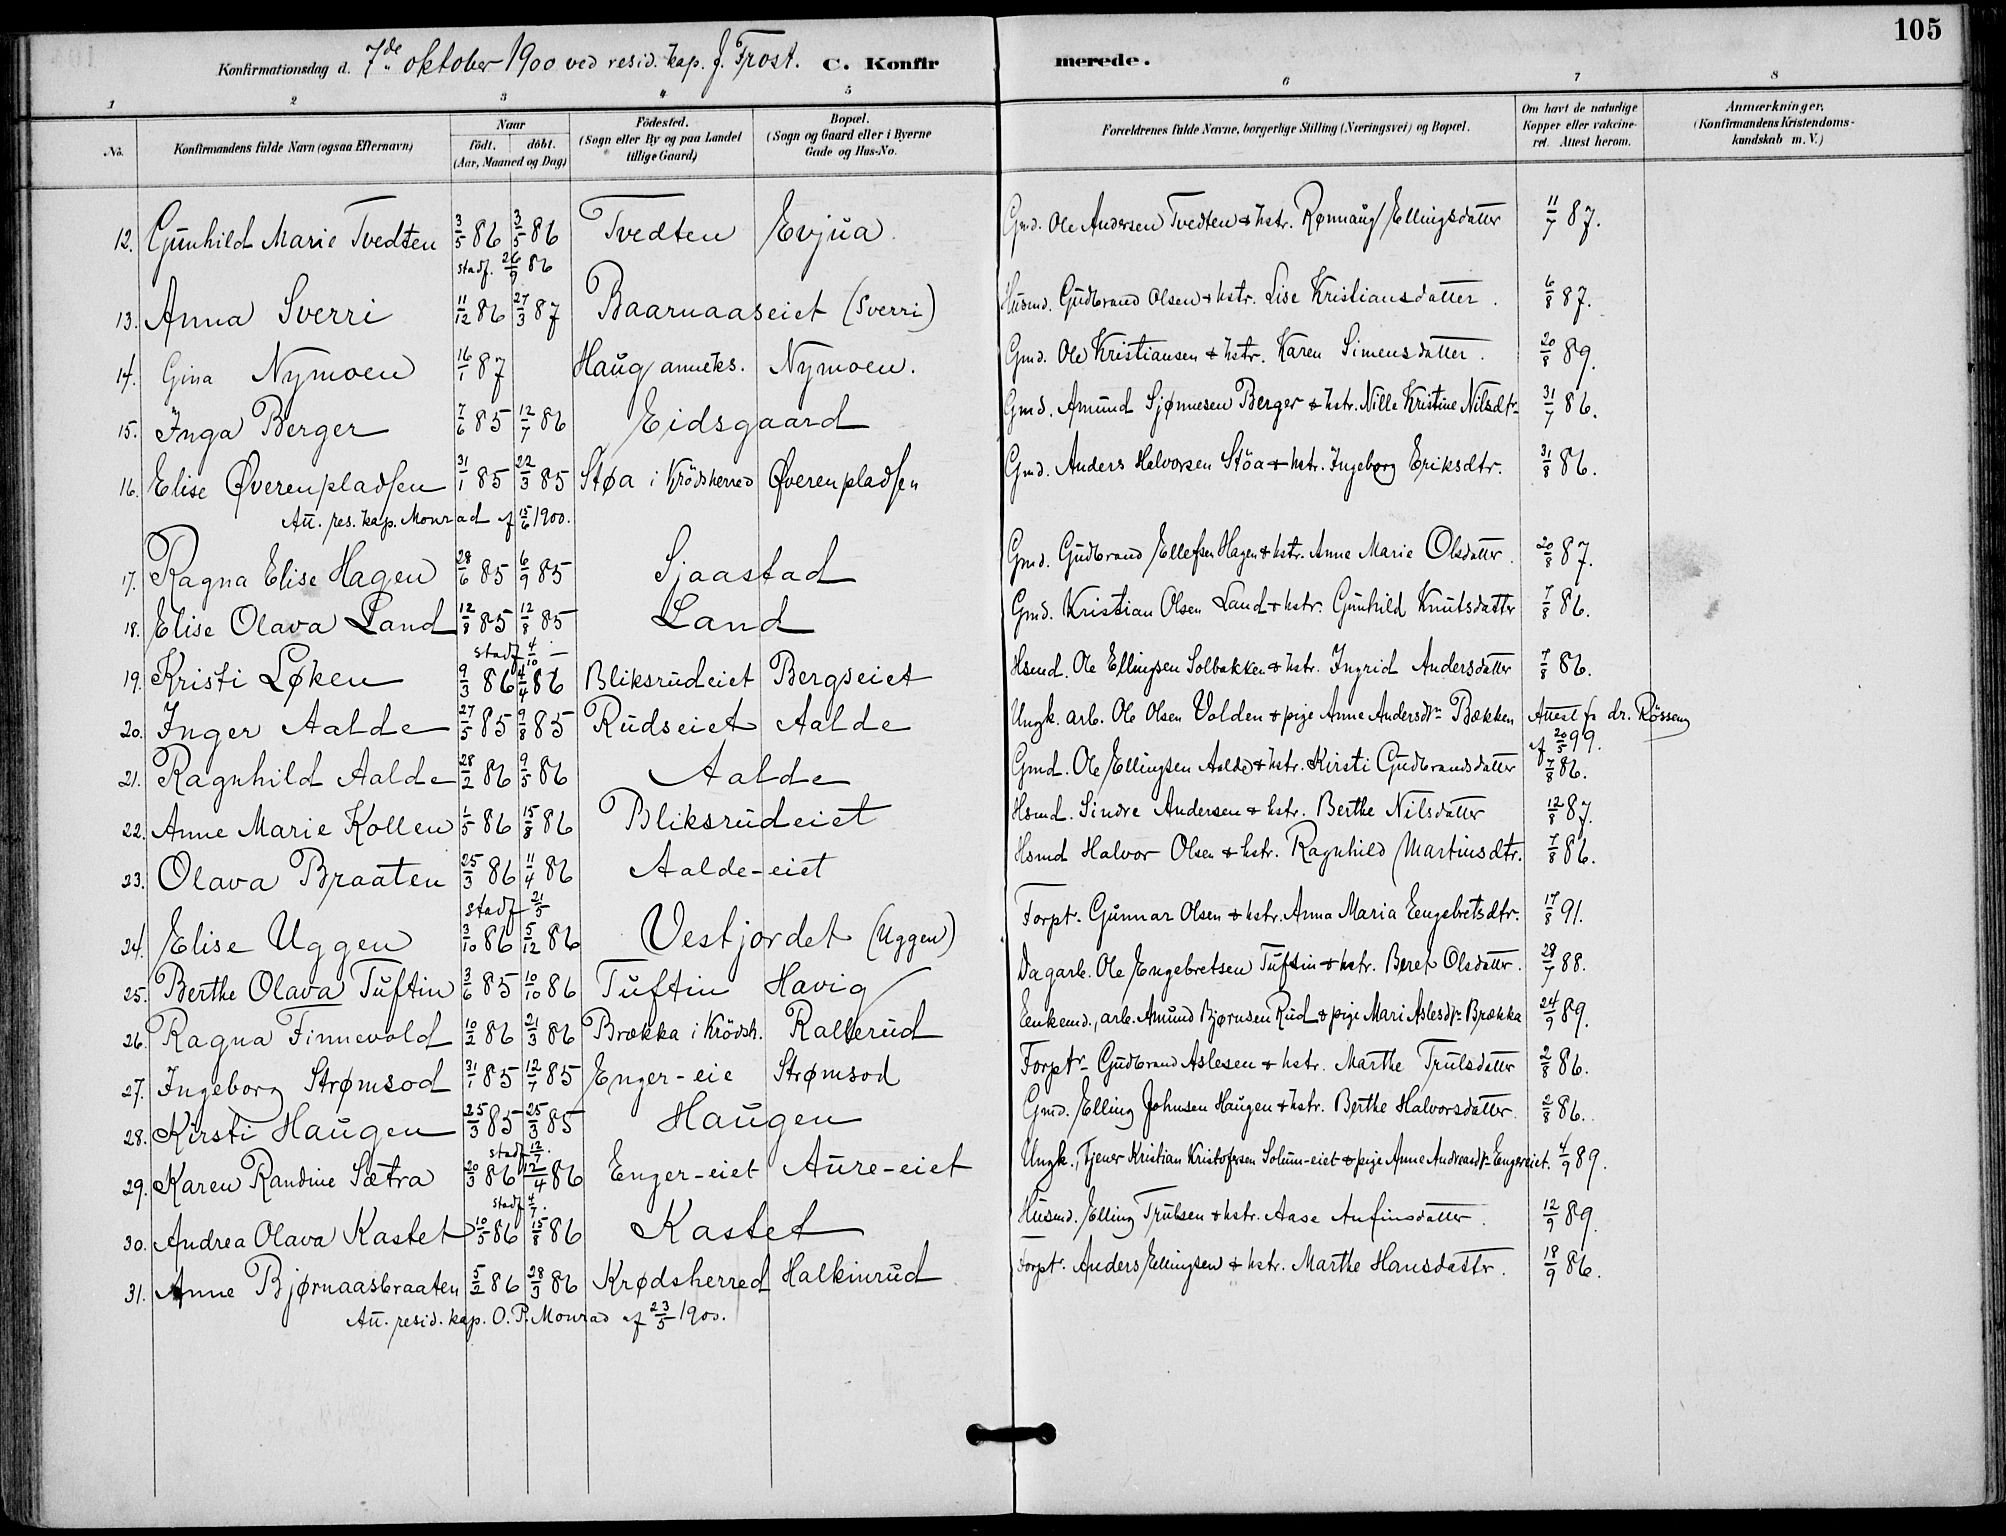 105
Konfirmationsdag d. 7de oktober 1900 ved resid. kap. J. Frost. C. Konfirmerede.
1 2 3 4 5 6 7 8
No. Konfirmandens fulde Navn (ogsaa Efternavn) Naar födt. döbt. (Aar, Maaned og Dag) Födested. (Sogn eller By og paa Landet tillige Gaard) Bopæl. (Sogn og Gaard eller i Byerne Gade og Hus-No. Forældrenes fulde Navne, borgerlige Stilling (Næringsvei) og Bopæl. Om havt de naturlige Kopper eller vakcineret. Attest herom. Anmærkninger, (Konfirmandens Kristendomskundskab m. V.)
12. Gunhild Marie Tvedten 3/5 86 3/5 86 Tvedten Evjua. Gmd. Ole Andersen Tvedten & hstr. Rønnaug Ellingsdatter 11/7 87.
stadf. 26/9 86
13. Anna Sverri 11/12 86 27/3 87 Baarnaaseiet (Sverri) Husmd. Gudbrand Olsen & hstr. Lise Kristiansdatter. 6/8 87.
14. Gina Nymoen 16/1 87 Haug anneks. Nymoen. Gmd. Ole Kristiansen & hstr. Karen Simensdatter. 20/8 89.
15. Inga Berger 7/6 85 12/7 86 Eidsgaard Gmd. Amund Sjønnesen Berger & hstr. Nille Kristine Nilsdtr 31/7 86.
16. Elise Øverenpladsen 31/1 85 22/3 85 Støa i Krödsherred Øverenpladsen Gmd. Anders Halvorsen Stöa & hstr. Ingeborg Eriksdtr. 31/8 86.
Att. res. kap. Monrad af 15/6 1900.
17. Ragna Elise Hagen 28/6 85 6/9 85 Sjaastad Gmd. Gudbrand Ellefsen Hagen & hstr. Anne Marie Olsdatter. 20/8 87.
18. Elise Olava Land 12/8 85 12/8 85 Land Gmd. Kristian Olsen Land & hstr. Gunhild Knutsdatter 7/8 86.
stadf 4/10 —
19. Kristi Løken 9/3 86 4/4 86 Bliksrudeiet Bergseiet Hsmd. Ole Ellingsen Solbakken & hstr. Ingrid Andersdatter 7/8 86.
20. Inger Aalde 27/5 85 9/8 85 Rudseiet Aalde Ungk. arb. Ole Olsen Volden & pige Anne Andersdtr Bækken Attest fr dr. Rösseng af 20/5 99.
21. Ragnhild Aalde 28/2 86 9/5 86 Aalde Gmd. Ole Ellingsen Aalde & hstr. Kirsti Gudbrandsdatter 7/8 86.
22. Anne Marie Kollen 1/5 86 15/8 86 Bliksrudeiet Hsmd. Sindre Andersen & hstr. Berthe Nilsdatter 12/8 87.
23. Olava Braaten 25/3 86 11/4 86 Aalde-eiet Hsmd Halvor Olsen & hstr. Ragnhild Martinsdtr. 7/8 86.
stadf 21/5
24. Elise Uggen 3/10 86 5/12 86 Vestjordet (Uggen) Forpt. Gunnar Olsen & hstr. Anna Maria Eengebretsdtr. 17/8 91.
25. Berthe Olava Tuftin 3/6 85 10/10 86 Tuftin Havig Dagarb. Ole Engebretsen Tuftin & hstr. Beret Olsdatter. 28/7 88.
26. Ragna Finnevold 10/2 86 21/3 86 Brækka i Krödsh. Ralterud Enkemd., arb. Amund Bjørnsen Rud & pige Mari Aslesdtr Brækka 24/9 89.
27. Ingeborg Strømsod 31/1 85 12/7 85 Enger-eie Strømsod Forptr Gudbrand Aslesen & hstr. Marthe Trulsdatter 2/8 86.
28. Kirsti Haugen 25/3 85 25/3 85 Haugen Gmd. Elling Johnsen Haugen & hstr. Berthe Halvorsdatter. 2/8 86.
stadf 12/7.
29. Karen Randine Sætra 20/3 86 12/4 86 Enger-eiet Aure-eiet Ungk., Tjener Kristian Kristofersen Solum-eiet & pige Anne Andreasdtr Engereiet. 4/9 89.
stadf 4/7.
30. Andrea Olava Kastet 10/5 86 15/8 86 Kastet Husmd. Elling Trulsen & hstr. Aase Anfinsdatter. 12/9 89.
31. Anne Bjørnaasbraaten 5/2 86 28/3 86 Krødsherred Halkinrud Forpt. Anders Ellingsen & hstr. Marthe Hansdattr. 18/9 86.
Att. resid. kap. O. P. Monrad af 23/5 1900.